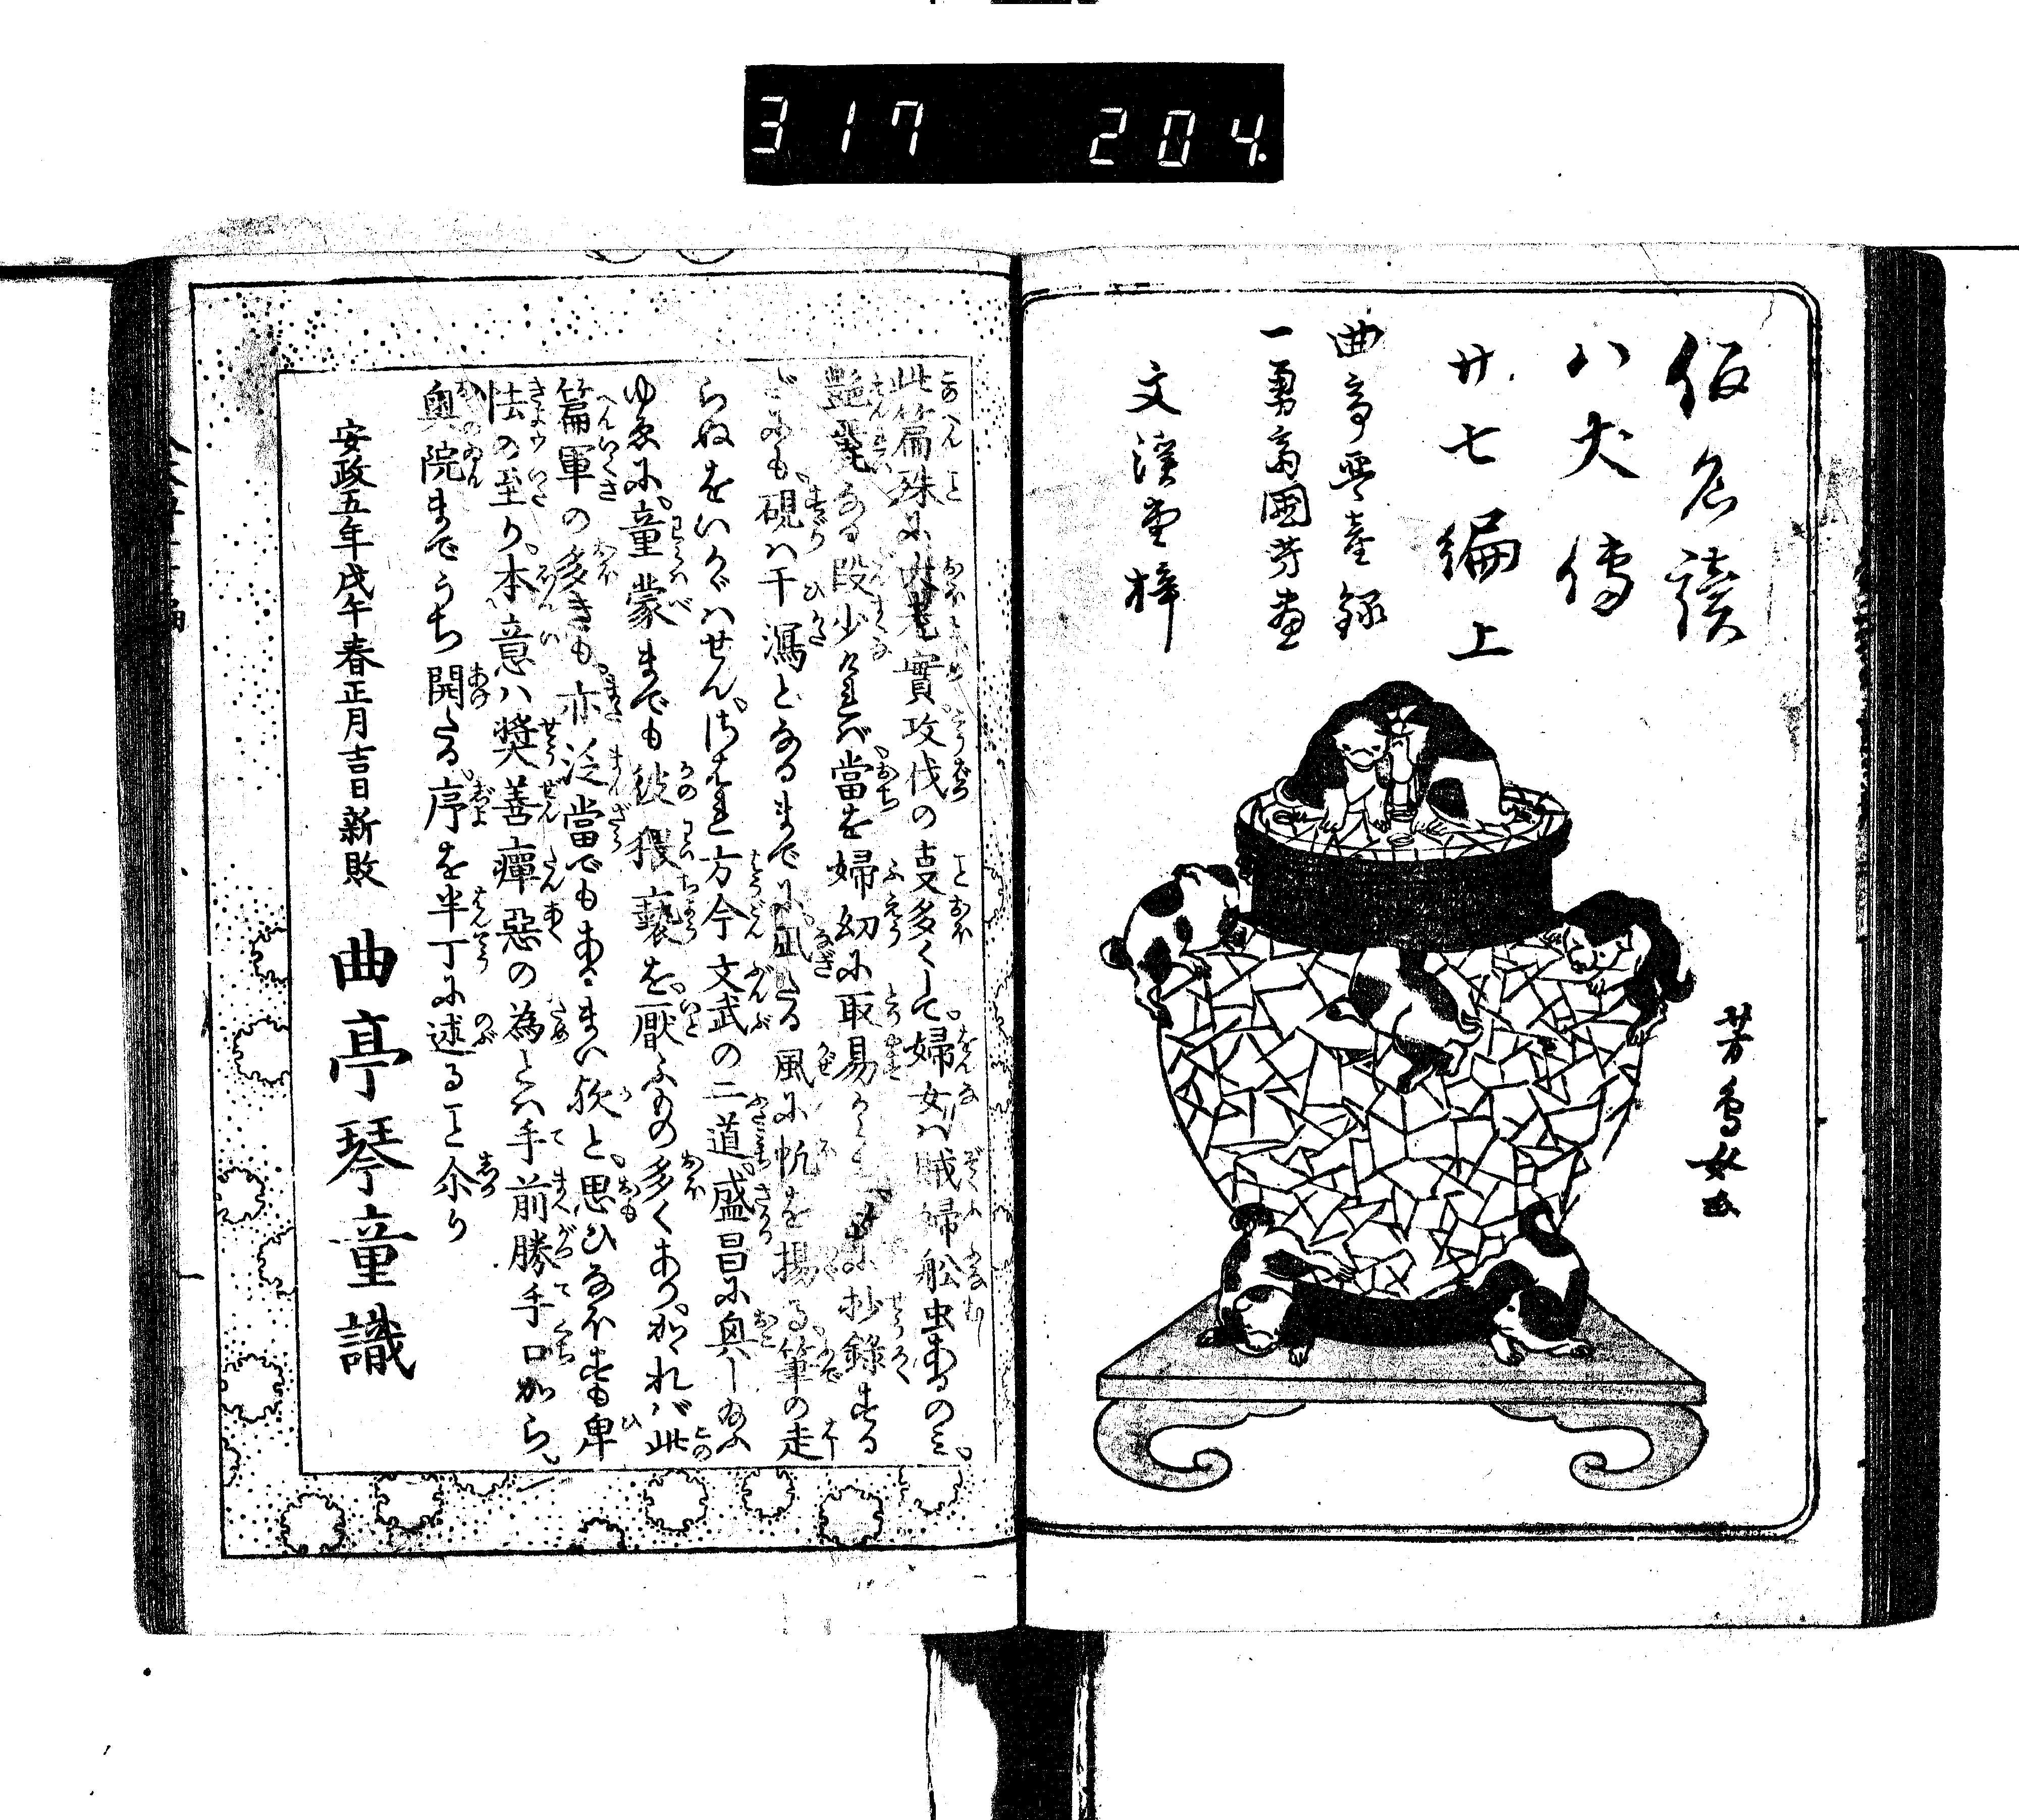 317 204.
仮名読
八犬傳
廿七編上
曲亭琴童録
一勇齋國芳画
文渓堂梓
芳鳥女画
此篇殊に
實攻伐の支多くして婦女ハ賊婦舩虫あるのミ
艶麗なる段少けれバ當を婦幼に取易
抄録する
にも硯ハ干瀉となるまでに凪たる風に帆を揚る筆の走
らぬをいかゞハせん
方今文武の二道盛昌に
ゆゑに童蒙までも彼猥褻を厭ふもの多くあり
かゝれバ此
篇軍の多きも亦泛當でもあ
まい歟と思ひ
なほも卑
怯の至り本意ハ奨善癉惡の為とハ手前勝手口から
奥院までうち開たる序を半丁に述ること尓り
安政五年戊午春正月吉日新政
曲亭琴童識